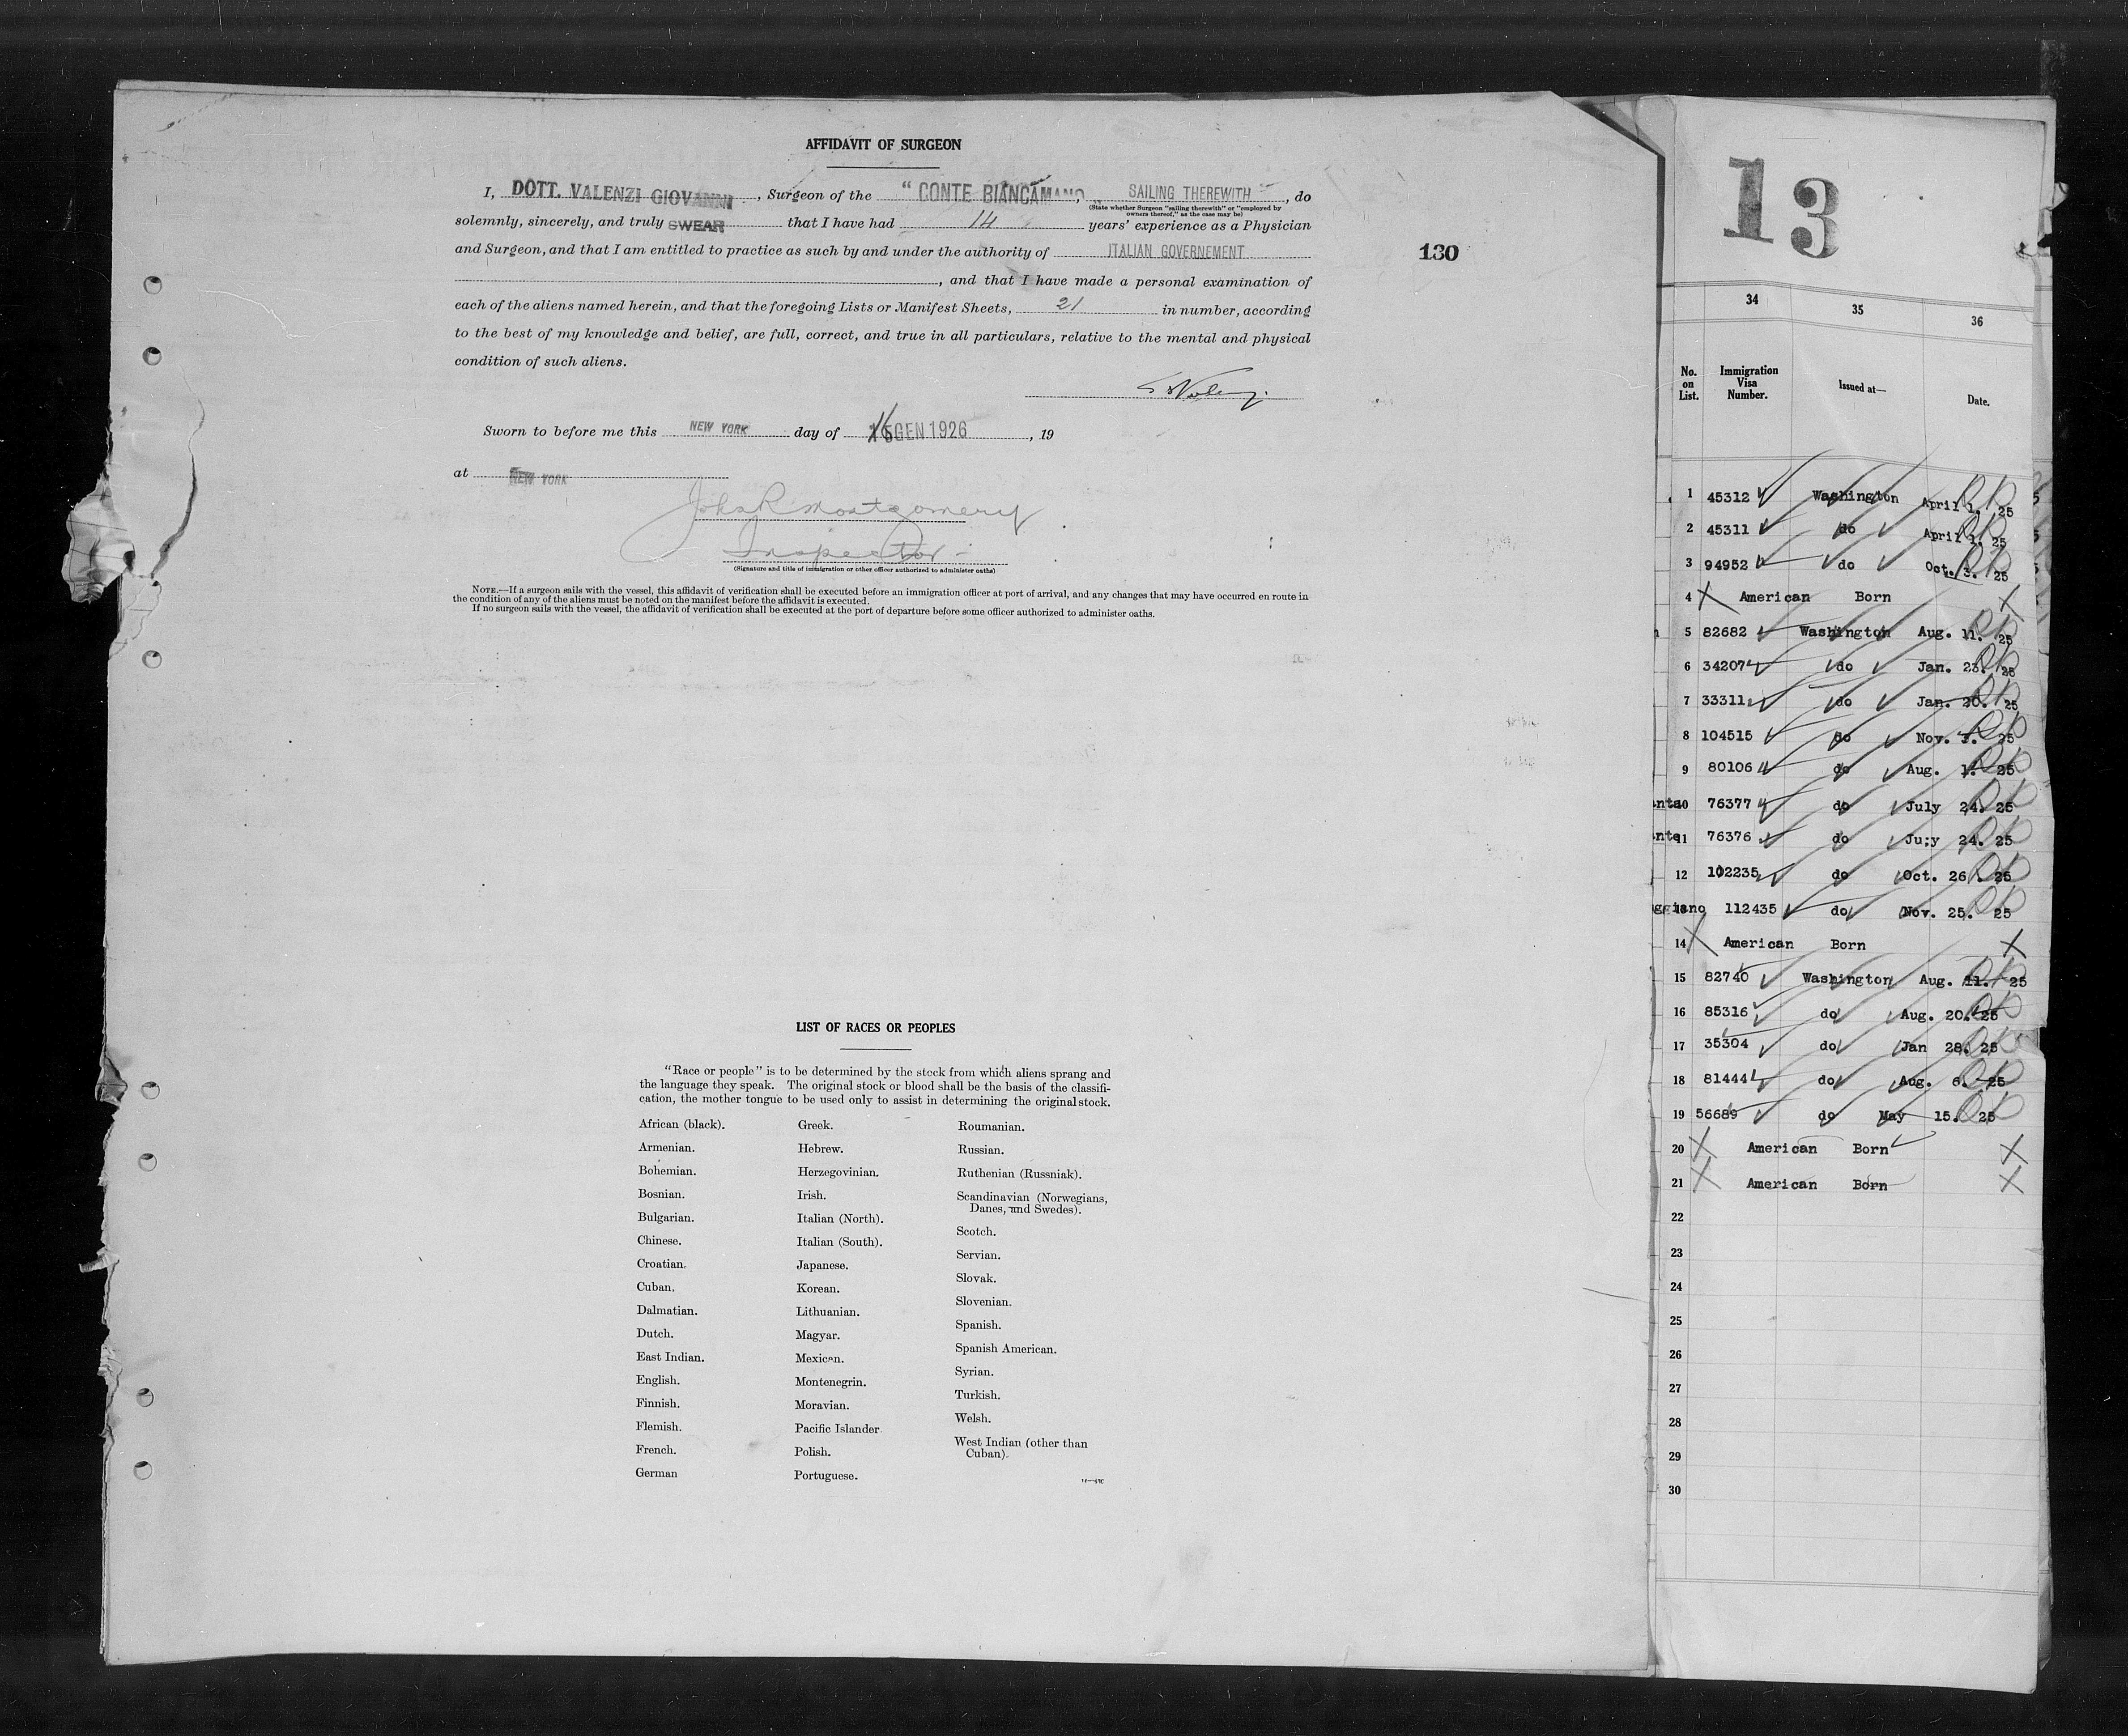 AFFIDAVIT OF SURGEON
I, DOTT. VALENZI GIOVANNI, Surgeon of the "CONTE BIANCAMANO, SAILING THEREWITH, do
(State whether Surgeon "sailing therewith" or "employed by
owners thereof," as the case may be)
solemnly, sincerely, and truly SWEAR that I have had 14 years' experience as a Physician
and Surgeon, and that I am entitled to practice as such by and under the authority of ITALIAN GOVERNEMENT
, and that I have made a personal examination of
each of the aliens named herein, and that the foregoing Lists or Manifest Sheets, 21 in number, according
to the best of my knowledge and belief, are full, correct, and true in all particulars, relative to the mental and physical
condition of such aliens.
Sworn to before me this NEW YORK day of 16 GEN 1926, 19
at NEW YORK
John R Montgomery
Inspector
(Signature and title of immigration or other officer authorized to administer oaths)
NOTE.—If a surgeon sails with the vessel, this affidavit of verification shall be executed before an immigration officer at port of arrival, and any changes that may have occurred en route in
the condition of any of the aliens must be noted on the manifest before the affidavit is executed.
If no surgeon sails with the vessel, the affidavit of verification shall be executed at the port of departure before some officer authorized to administer oaths.
130
LIST OF RACES OR PEOPLES
"Race or people" is to be determined by the stock from which aliens sprang and
the language they speak. The original stock or blood shall be the basis of the classifi-
cation, the mother tongue to be used only to assist in determining the original stock.
African (black).
Armenian.
Bohemian.
Bosnian.
Bulgarian.
Chinese.
Croatian.
Cuban.
Dalmatian.
Dutch.
East Indian.
English.
Finnish.
Flemish.
French.
German
Greek.
Hebrew.
Herzegovinian.
Irish.
Italian (North).
Italian (South).
Japanese.
Korean.
Lithuanian.
Magyar.
Mexican.
Montenegrin.
Moravian.
Pacific Islander
Polish.
Portuguese.
Roumanian.
Russian.
Ruthenian (Russniak).
Scandinavian (Norwegians,
Danes, and Swedes).
Scotch.
Servian.
Slovak.
Slovenian.
Spanish.
Spanish American.
Syrian.
Turkish.
Welsh.
West Indian (other than
Cuban).
13
34 35 36
No. on List. Immigration Visa Number. Issued at— Date.
1 45312 Washington April 1. 25
2 45311 do April 1. 25
3 94952 do Oct. 3. 25
4 X American Born X
5 82682 Washington Aug. 11. 25
6 34207 do Jan. 23. 25
7 33311 do Jan. 20. 25
8 104515 do Nov. 3. 25
9 80106 do Aug. 1. 25
10 76377 do July 24. 25
11 76376 do Ju;y 24. 25
12 102235 do Oct. 26. 25
13 112435 do Nov. 25. 25
14 X American Born X
15 82740 Washington Aug. 11. 25
16 85316 do Aug. 20. 25
17 35304 do Jan 28. 25
18 81444 do Aug. 6. 25
19 56689 do May 15. 25
20 X American Born X
21 X American Born X
22
23
24
25
26
27
28
29
30